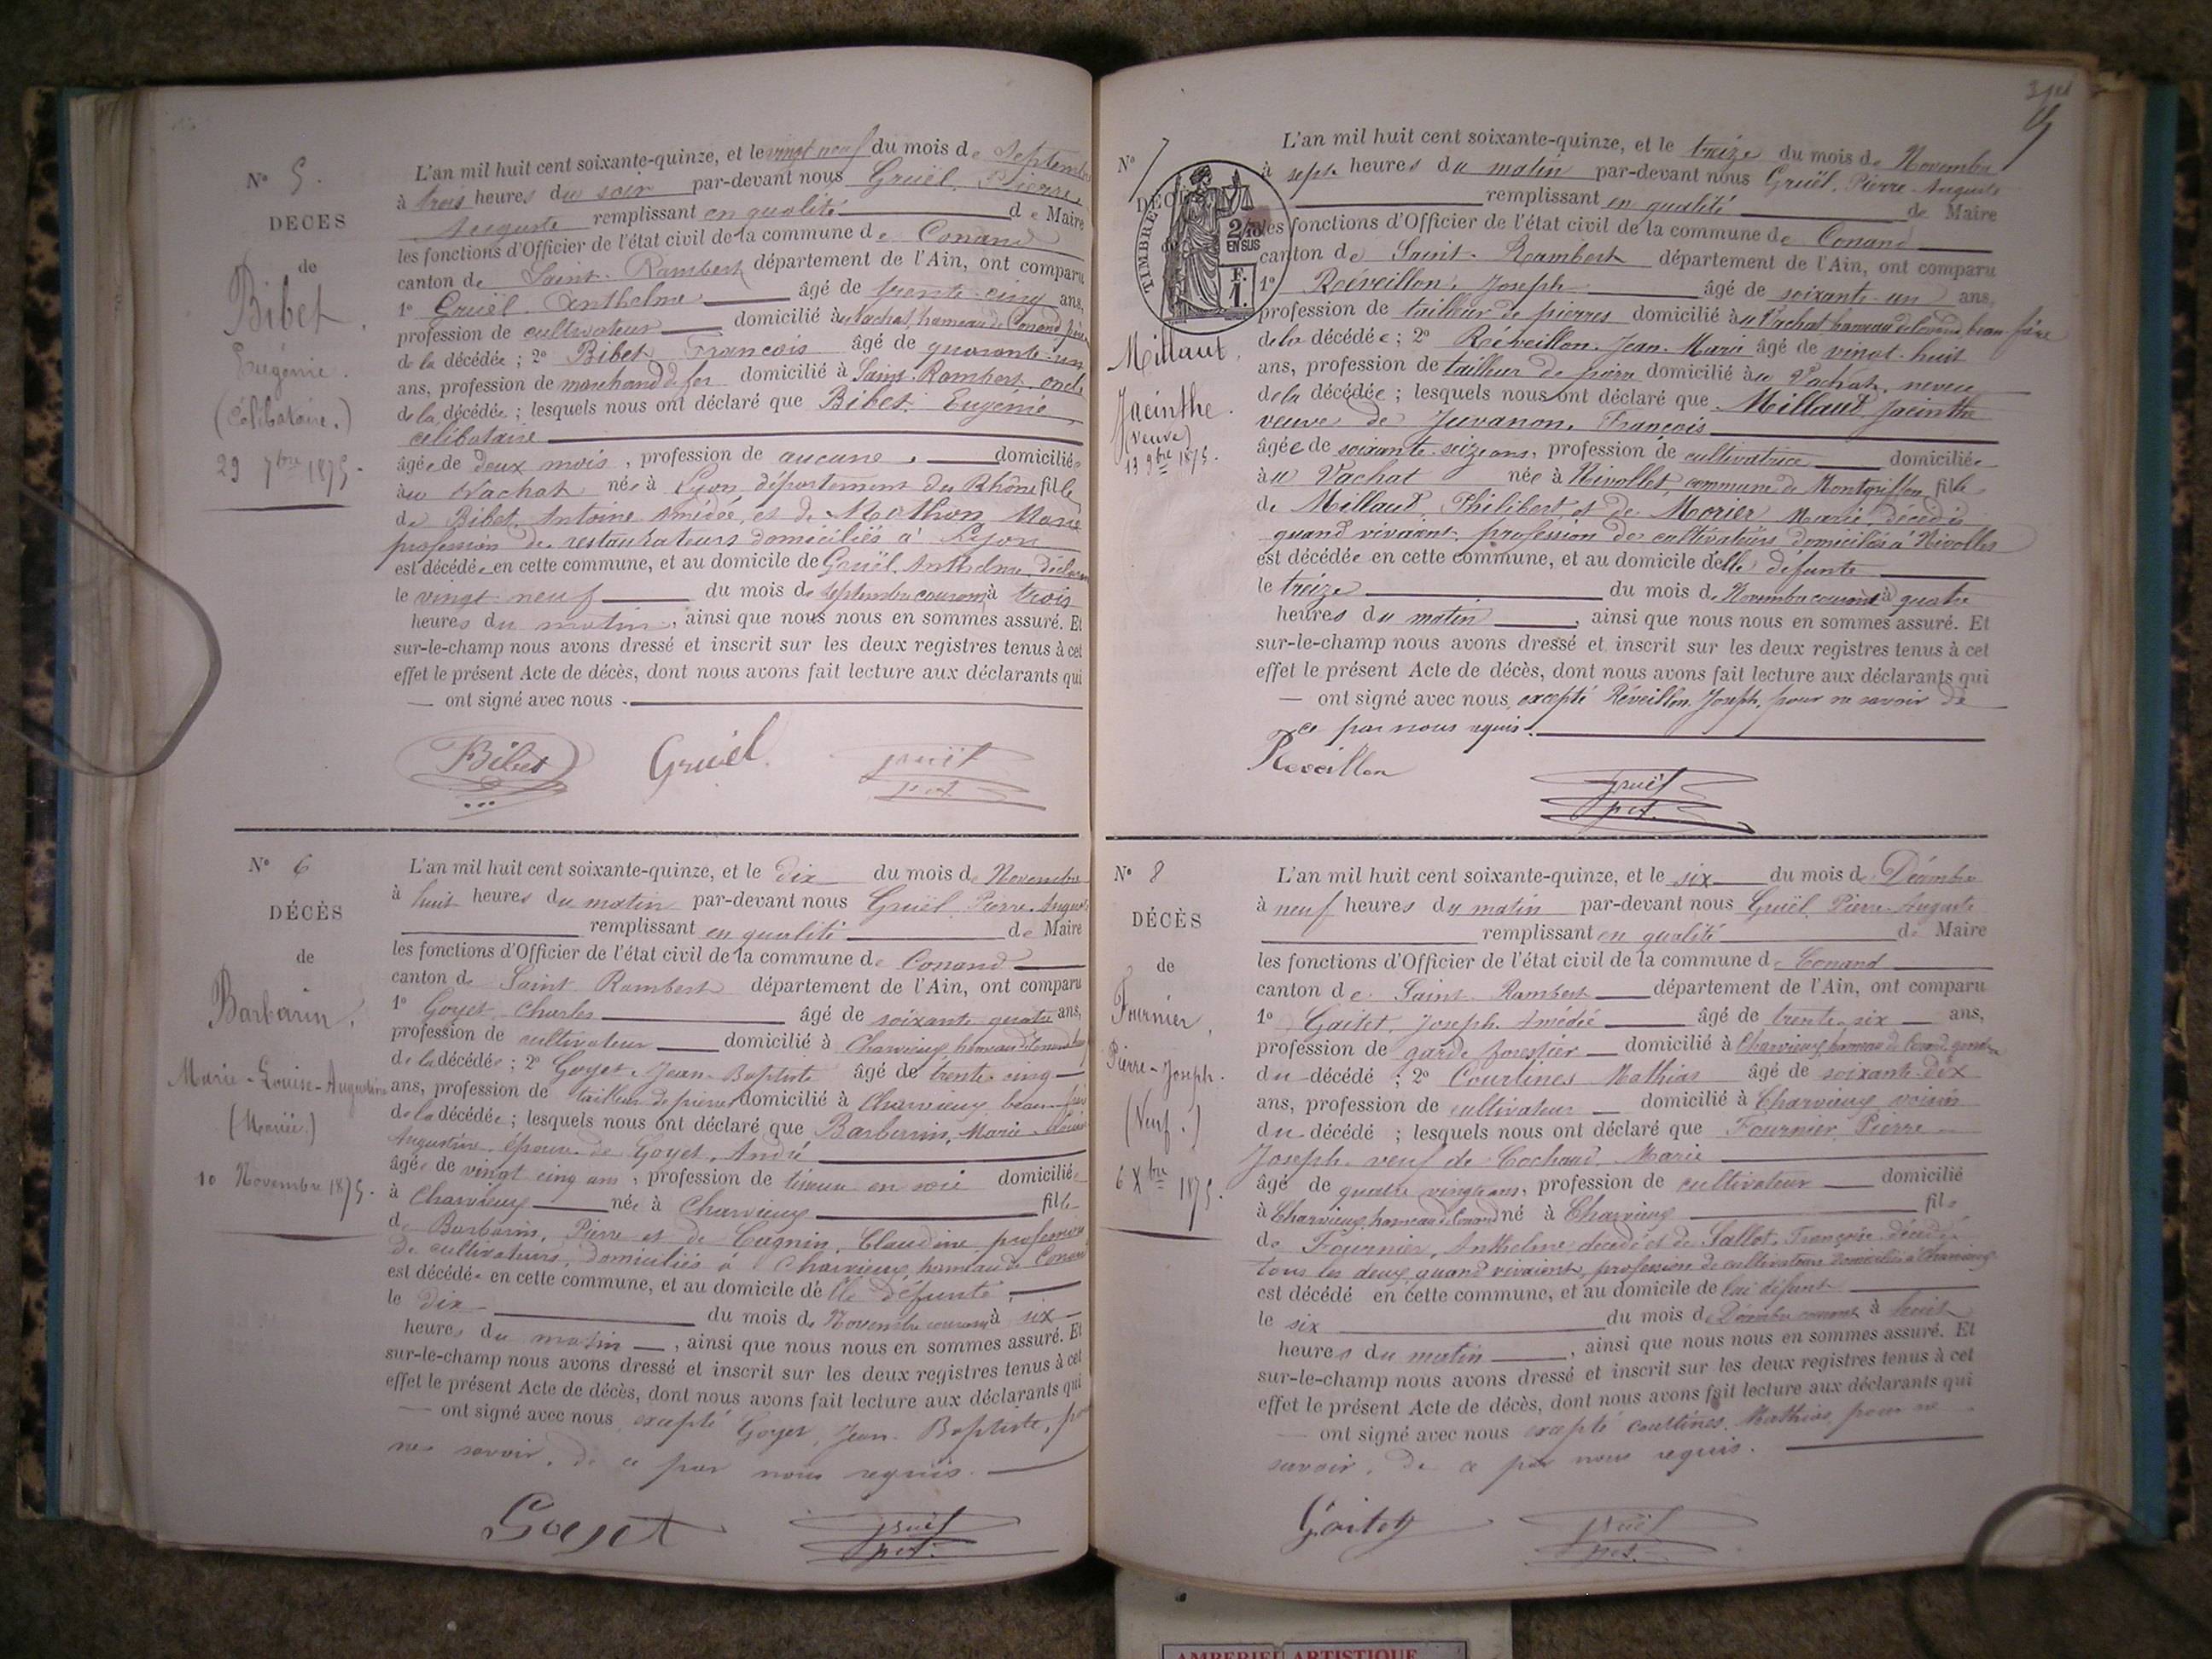 N° 5.
DECES
de
Bibet.
Eugénie.
(Célibataire.)
29 7bre 1875.
L'an mil huit cent soixante-quinze, et le vingt neuf du mois de Septembre
à trois heures du soir par-devant nous Gruël, Pierre,
Auguste remplissant en qualité de Maire
les fonctions d'Officier de l'état civil de la commune de Conand
canton de Saint-Rambert département de l'Ain, ont comparu
1° Gruël Anthelme âgé de trente-cinq ans,
profession de cultivateur domicilié à au Vachat, hameau de Conand
de la décédée ; 2° Bibet François âgé de quarante-un
ans, profession de marchand de fer domicilié à Saint-Rambert, oncle
de la décédée ; lesquels nous ont déclaré que Bibet, Eugénie,
célibataire
âgée de deux mois, profession de aucune, domiciliée
au Vachat née à Lyon département du Rhône fille
de Bibet, Antoine Amédée, et de Mathon Marie
profession de restaurateurs domiciliés à Lyon
est décédée en cette commune, et au domicile de Gruël, Anthelme, déclarant
le vingt-neuf du mois de Septembre courant à trois
heures du matin, ainsi que nous nous en sommes assuré. Et
sur-le-champ nous avons dressé et inscrit sur les deux registres tenus à cet
effet le présent Acte de décès, dont nous avons fait lecture aux déclarants qui
— ont signé avec nous.
Bibet Gruël Gruël
N° 6
DÉCÈS
de
Barbarin.
Marie-Louise-Augustine
(Mariée)
10 Novembre 1875.
L'an mil huit cent soixante-quinze, et le dix du mois de Novembre
à huit heures du matin par-devant nous Gruël Pierre-Auguste
remplissant en qualité de Maire
les fonctions d'Officier de l'état civil de la commune de Conand
canton de Saint Rambert département de l'Ain, ont comparu
1° Goyet, Charles âgé de soixante quatre ans,
profession de cultivateur domicilié à Charvieux, hameau de Conand
de la décédée ; 2° Goyet, Jean-Baptiste âgé de trente-cinq
ans, profession de tailleur de pierres domicilié à Charvieux, beau-frère
de la décédée ; lesquels nous ont déclaré que Barbarin, Marie-Louise
Augustine, épouse de Goyet, André
âgée de vingt cinq ans, profession de tisseuse en soie domiciliée
à Charvieux née à Charvieux fille
de Barbarin, Pierre et de Cugnin, Claudine, profession
de cultivateurs, domiciliés à Charvieux, hameau de Conand
est décédée en cette commune, et au domicile d'elle défunte,
le dix du mois de Novembre courant à six
heures du matin, ainsi que nous nous en sommes assuré. Et
sur-le-champ nous avons dressé et inscrit sur les deux registres tenus à cet
effet le présent Acte de décès, dont nous avons fait lecture aux déclarants qui
— ont signé avec nous, excepté Goyet, Jean-Baptiste, pour
ne savoir, de ce par nous requis.
Goyet Gruël
N° 7
DÉCÈS
TIMBRE
2/10
EN SUS
F.
1.
Millaut,
Jacinthe.
(veuve)
13 9bre 1875.
L'an mil huit cent soixante-quinze, et le treize du mois de Novembre
à sept heures du matin par-devant nous Gruël, Pierre-Auguste
remplissant en qualité de Maire
les fonctions d'Officier de l'état civil de la commune de Conand
canton de Saint-Rambert département de l'Ain, ont comparu
1° Réveillon, Joseph âgé de soixante-un ans,
profession de tailleur de pierres domicilié à au Vachat hameau de Conand, beau-frère
de la décédée ; 2° Réveillon, Jean-Marie âgé de vingt-huit
ans, profession de tailleur de pierre domicilié à au Vachat, neveu
de la décédée ; lesquels nous ont déclaré que Millaut, Jacinthe
veuve de Juvanon, François
âgée de soixante-seize ans, profession de cultivatrice domiciliée
au Vachat née à Nivollet, commune de Montgriffon fille
de Millaut, Philibert, et de Morier Marie, décédés
quand vivaient, profession de cultivateurs domiciliés à Nivollet
est décédée en cette commune, et au domicile d'elle défunte
le treize du mois de Novembre courant à quatre
heures du matin, ainsi que nous nous en sommes assuré. Et
sur-le-champ nous avons dressé et inscrit sur les deux registres tenus à cet
effet le présent Acte de décès, dont nous avons fait lecture aux déclarants qui
— ont signé avec nous, excepté Réveillon, Joseph, pour ne savoir de
ce par nous requis.
Réveillon Gruël
N° 8
DÉCÈS
de
Fournier,
Pierre-Joseph.
(Veuf.)
6 Xbre 1875.
L'an mil huit cent soixante-quinze, et le six du mois de Décembre
à neuf heures du matin par-devant nous Gruël, Pierre-Auguste
remplissant en qualité de Maire
les fonctions d'Officier de l'état civil de la commune de Conand
canton de Saint-Rambert département de l'Ain, ont comparu
1° Gaitet, Joseph-Amédée âgé de trente-six ans,
profession de garde forestier domicilié à Charvieux, hameau de Conand, gendre
du décédé ; 2° Courtines Mathias âgé de soixante-dix
ans, profession de cultivateur domicilié à Charvieux voisin
du décédé ; lesquels nous ont déclaré que Fournier, Pierre-
Joseph, veuf de Cochaud, Marie
âgé de quatre vingts ans, profession de cultivateur domicilié
à Charvieux, hameau de Conand né à Charvieux fils
de Fournier, Anthelme décédé et de Sallot, Françoise, décédée
tous les deux, quand vivaient, profession de cultivateurs domiciliés à Charvieux
est décédé en cette commune, et au domicile de lui défunt
le six du mois de Décembre courant à huit
heures du matin, ainsi que nous nous en sommes assuré. Et
sur-le-champ nous avons dressé et inscrit sur les deux registres tenus à cet
effet le présent Acte de décès, dont nous avons fait lecture aux déclarants qui
— ont signé avec nous excepté Courtines, Mathias, pour ne
savoir, de ce par nous requis.
Gaitet Gruël
AMBERIEU ARTISTIQUE